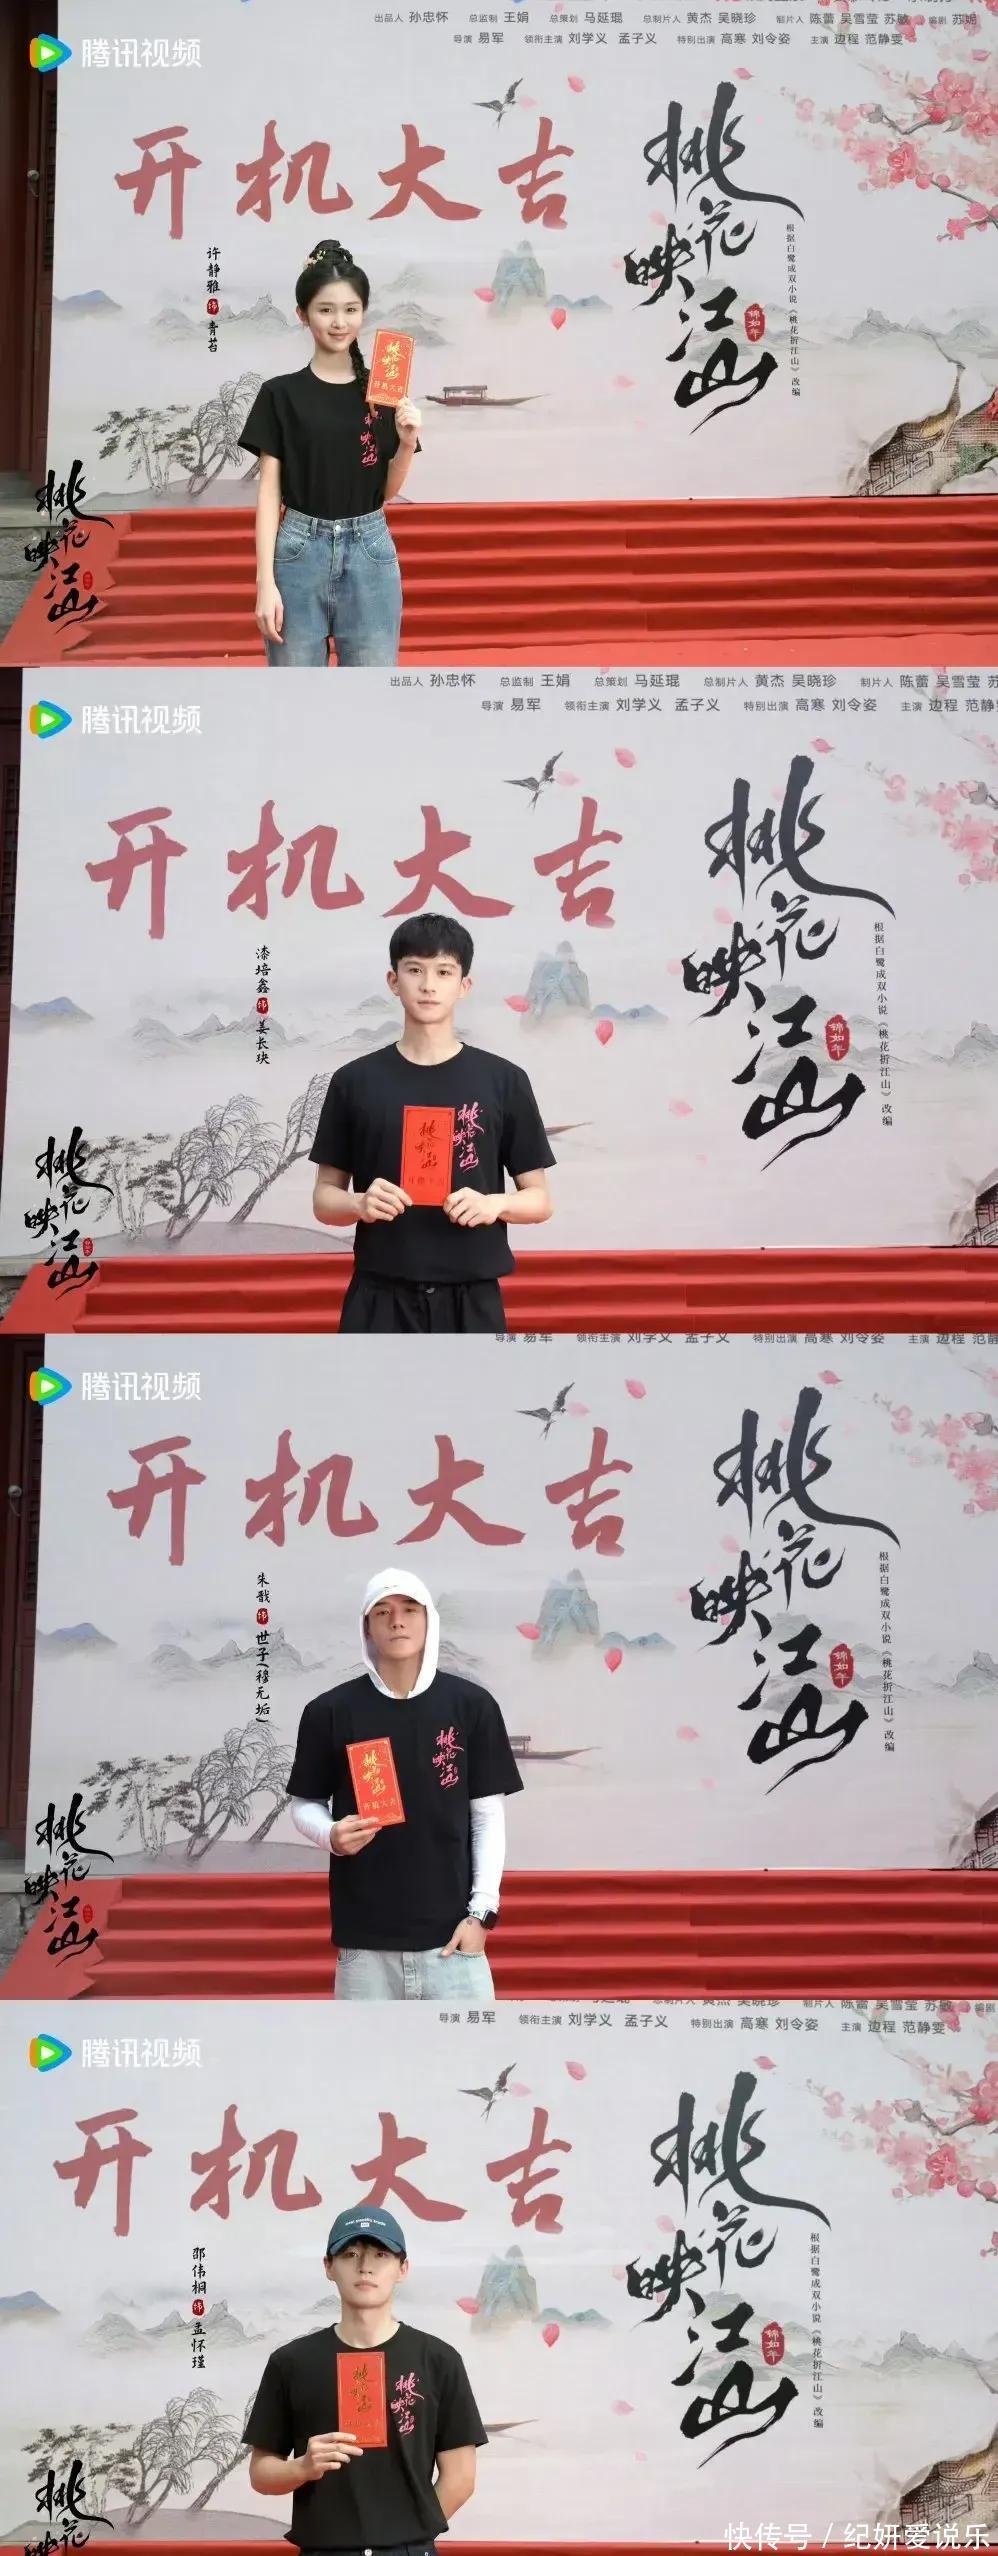 出品人 孙忠怀 总监制 王娟 总策划 马延琨 总制片人 黄杰 吴晓珍 制片人 陈蕾 吴雪莹 苏敏 编剧 苏妮
导演 易军 领衔主演 刘学义 孟子义 特别出演 高寒 刘令姿 主演 边程 范静雯
腾讯视频
开机大吉
桃花映江山
锦如年
根据白鹭成双小说《桃花折江山》改编
许静雅 饰 青苔
桃花映江山
开机大吉
桃花映江山
桃花映江山
出品人 孙忠怀 总监制 王娟 总策划 马延琨 总制片人 黄杰 吴晓珍 制片人 陈蕾 吴雪莹
导演 易军 领衔主演 刘学义 孟子义 特别出演 高寒 刘令姿 主演 边程 范静
腾讯视频
开机大吉
桃花映江山
锦如年
根据白鹭成双小说《桃花折江山》改编
漆培鑫 饰 姜长玦
桃花映江山
开机大吉
桃花映江山
桃花映江山
导演 易军 领衔主演 刘学义 孟子义 特别出演 高寒 刘令姿 主演 边程 范静
腾讯视频
开机大吉
桃花映江山
锦如年
根据白鹭成双小说《桃花折江山》改编
朱戬 饰 世子(穆无垢)
桃花映江山
开机大吉
桃花映江山
桃花映江山
制片人 陈蕾 吴雪莹 苏敏 编剧
导演 易军 领衔主演 刘学义 孟子义 特别出演 高寒 刘令姿 主演 边程 范静雯
腾讯视频
开机大吉
桃花映江山
锦如年
根据白鹭成双小说《桃花折江山》改编
邵伟桐 饰 孟怀瑾
桃花映江山
桃花映江山
桃花映
快传号 / 纪妍爱说乐